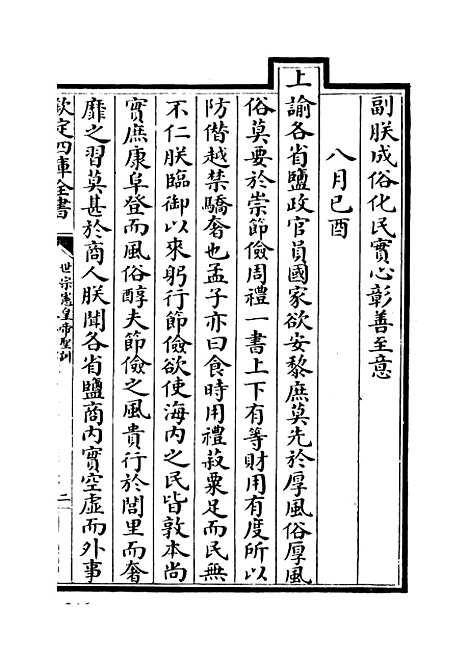 副朕成俗化民實心彰善至意
八月己酉
上諭各省鹽政官員國家欲安黎庶莫先於厚風俗厚風
俗莫要於崇節儉周禮一書上下有等財用有度所以
防僭越禁驕奢也孟子亦曰食時用禮菽粟足而民無
不仁朕臨御以來躬行節儉欲使海内之民皆敦本尚
實庶康阜登而風俗醇夫節儉之風貴行於閭里而奢
靡之習莫甚於商人朕聞各省鹽商内實空虛而外事
欽定四庫全書
世宗憲皇帝聖訓
二